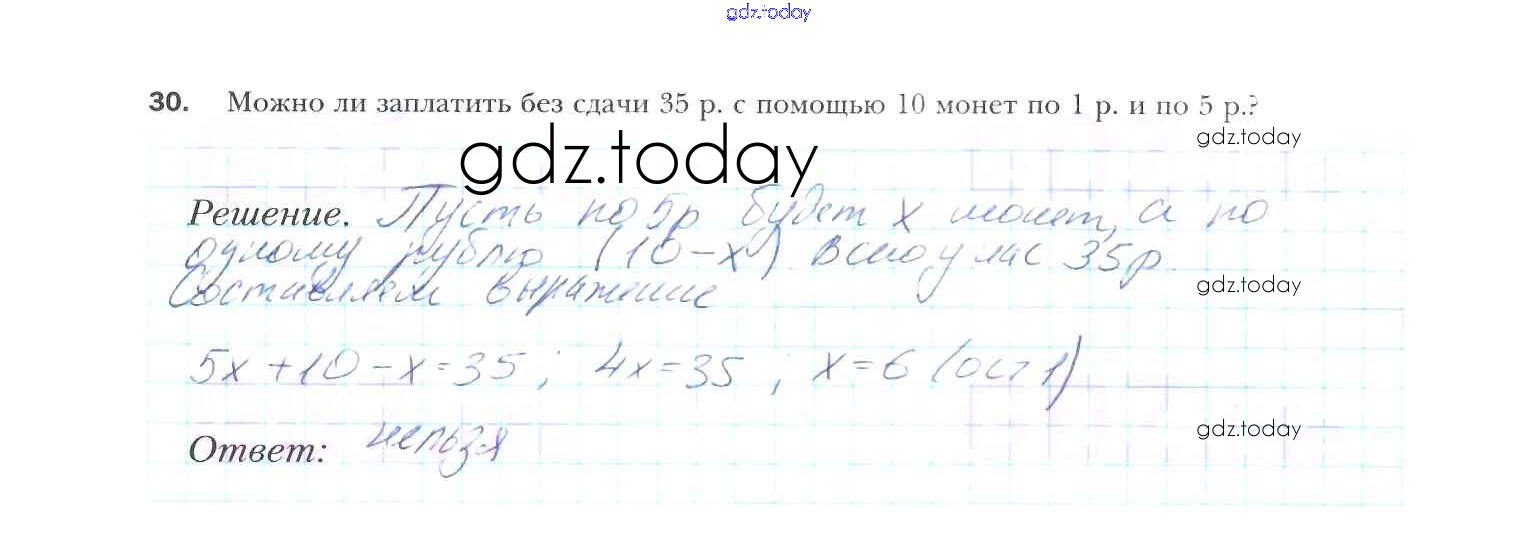 gdz.today
30. Можно ли заплатить без сдачи 35 р. с помощью 10 монет по 1 р. и по 5 р.?
gdz.today
gdz.today
Решение. Пусть по 5р будет x монет, а по
одному рублю (10-x). Всего у нас 35р.
Составляем выражение
gdz.today
5x+10-x=35; 4x=35; x=6 (ост 1)
Ответ: нельзя
gdz.today